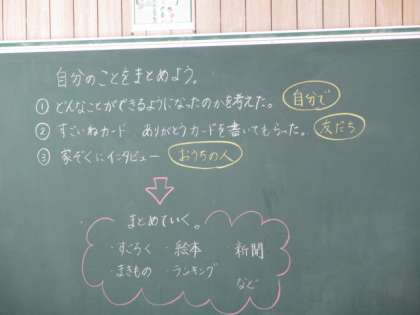 自分のことをまとめよう。
① どんなことができるようになったのかを考えた。 自分で
② すごいねカード ありがとうカードを書いてもらった。 友だち
③ 家ぞくにインタビュー おうちの人
まとめていく。
・すごろく ・絵本 新聞
・まきもの ・ランキング
など